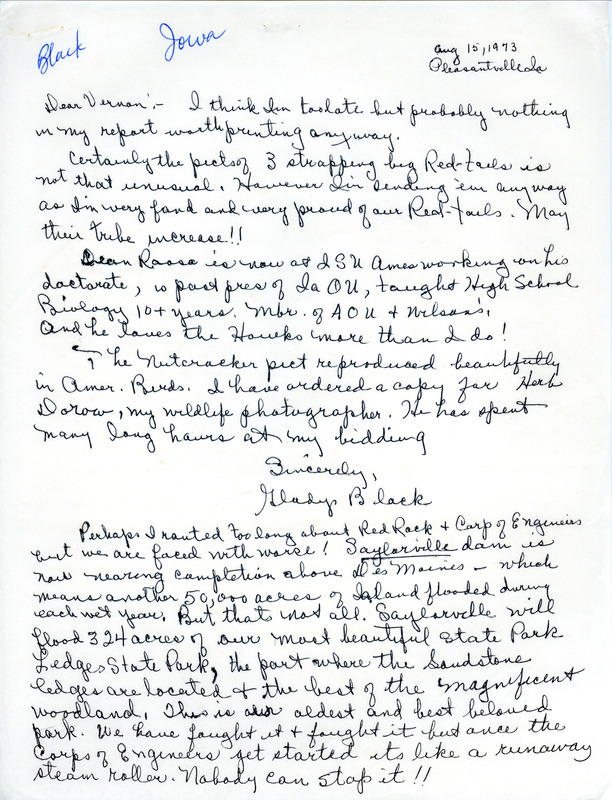 Black Iowa
Aug 15, 1973
Pleasantville Ia
Dear Vernon:- I think I'm too late but probably nothing
in my report worth printing anyway.
Certainly the picts of 3 strapping big Red-tails is
not that unusual. However I'm sending 'em anyway
as I'm very fond and very proud of our Red-tails. May
their tribe increase!!
Dean Roosa is now at ISU Ames working on his
doctorate, is past pres of Ia OU, taught High School
Biology 10+ years. Mbr. of AOU & Wilson's.
And he loves the Hawks more than I do!
The Nutcracker pict reproduced beautifully
in Amer. Birds. I have ordered a copy for Herb
Dorow, my wildlife photographer. He has spent
many long hours at my bidding
Sincerely,
Gladys Black
Perhaps I ranted too long about Red Rock & Corp of Engineers
but we are faced with worse! Saylorville dam is
now nearing completion above Des Moines - which
means another 50,000 acres of land flooded during
each wet year. But that's not all. Saylorville will
flood 324 acres of our most beautiful State Park
Ledges State Park, the part where the Sandstone
ledges are located & the best of the magnificent
woodland. This is our oldest and best beloved
park. We have fought it & fought it but once the
Corps of Engineers get started its like a runaway
steam roller. Nobody can stop it!!